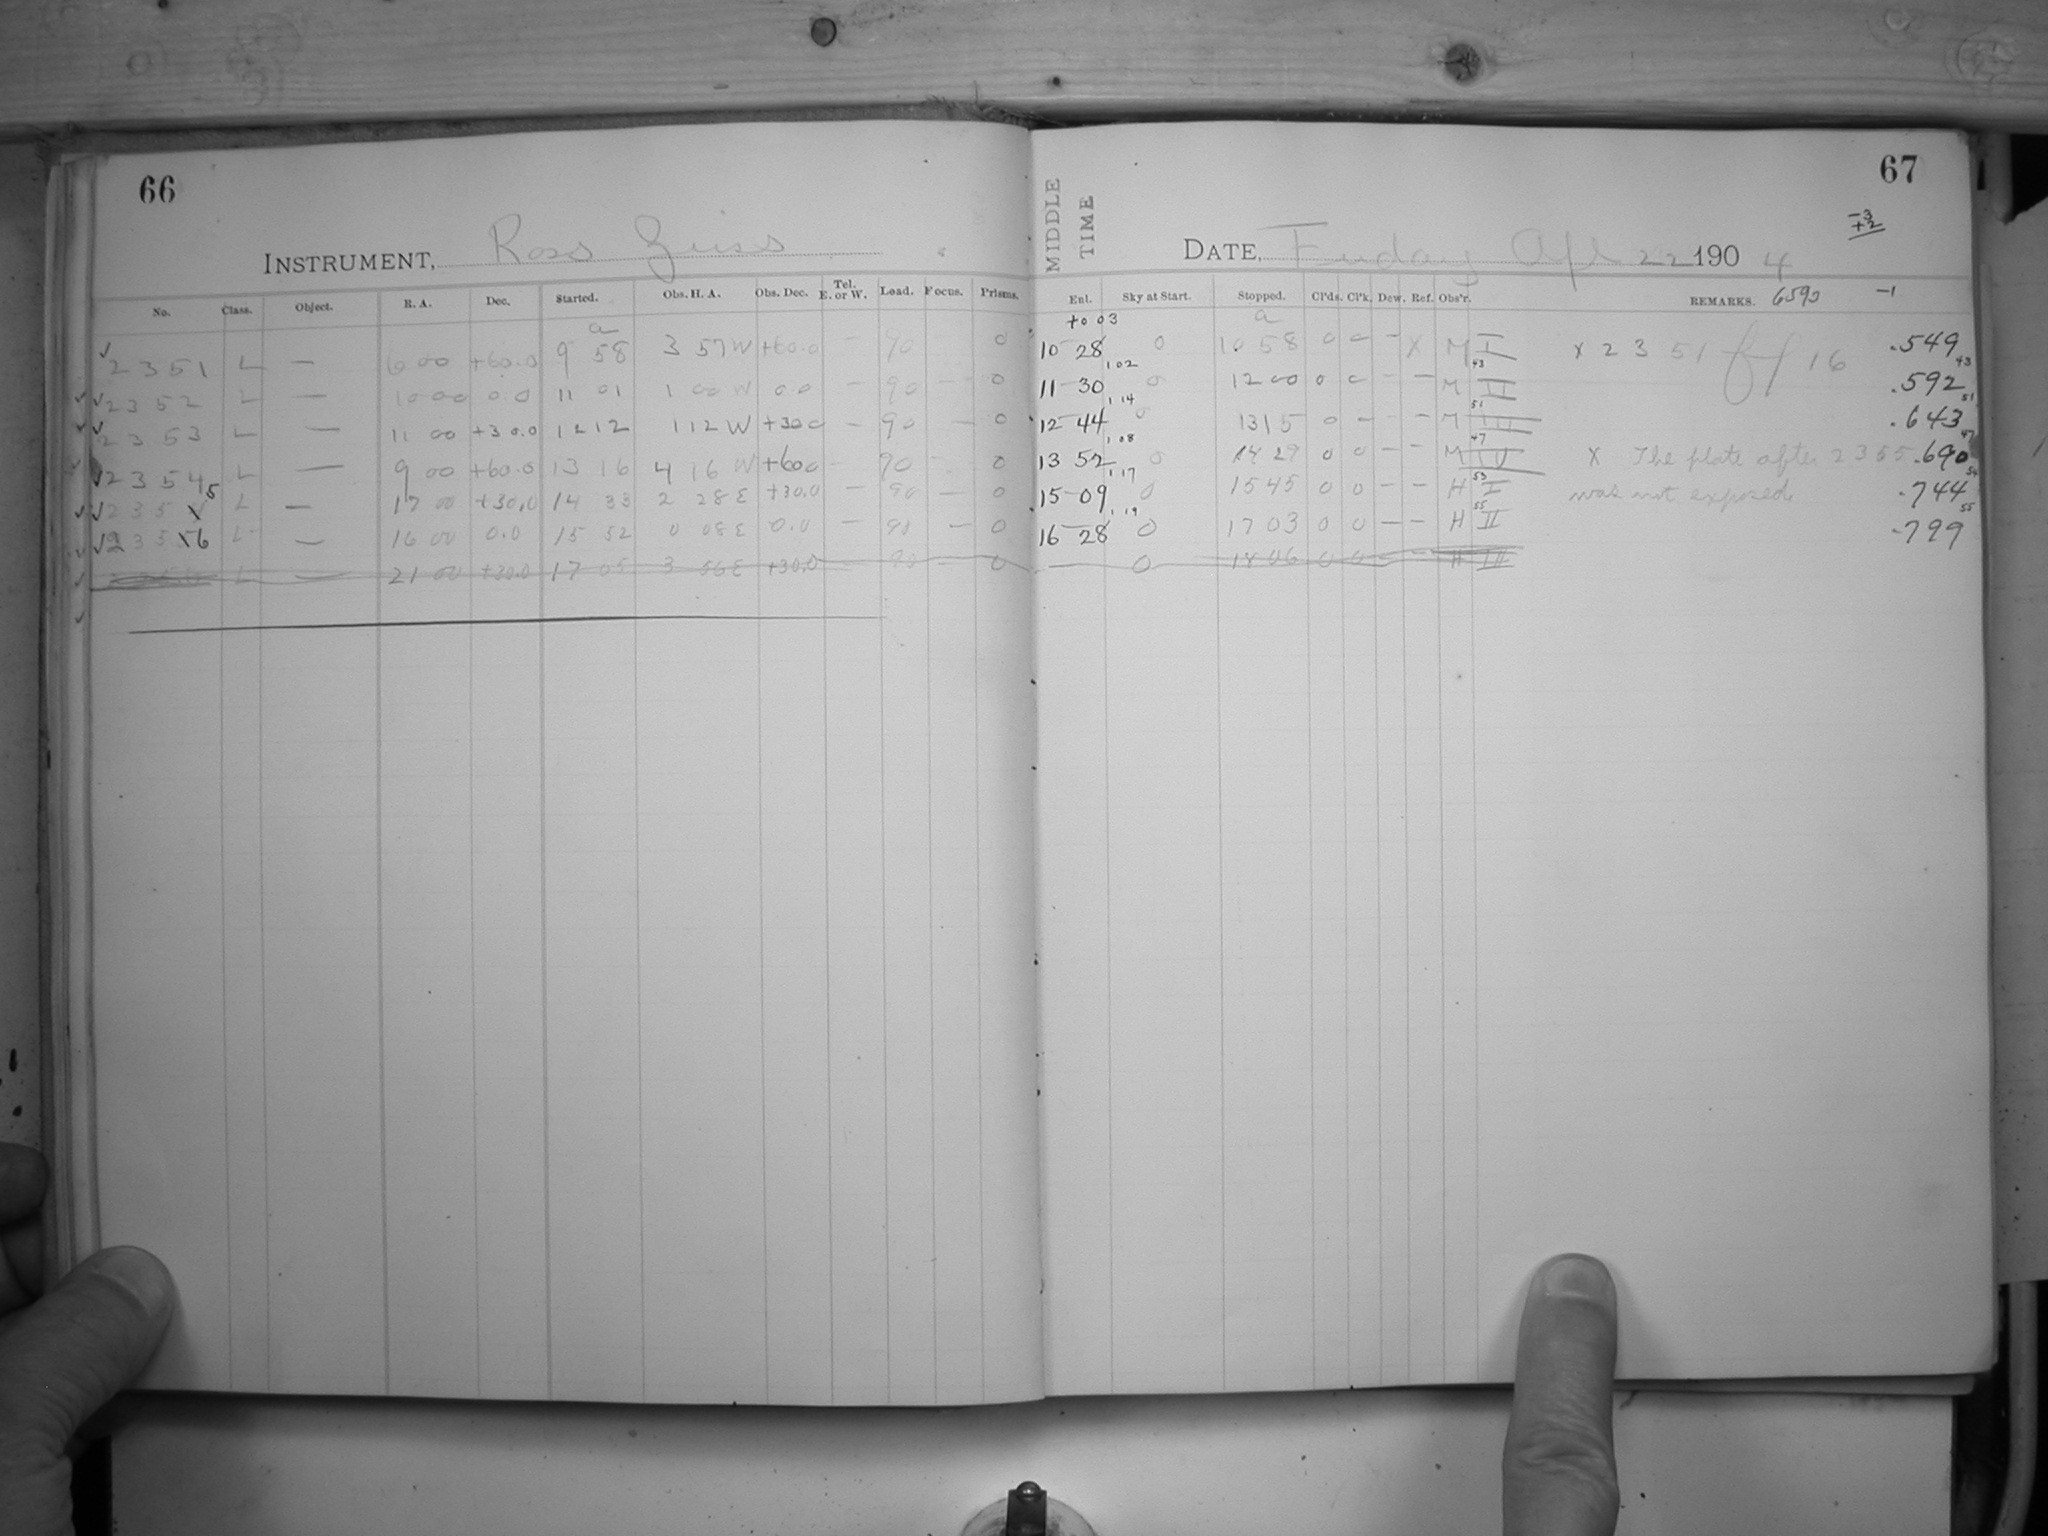 66
INSTRUMENT, Ross Zeiss
No. Class. Object. R. A. Dec. Started. Obs. H. A. Obs. Dec. Tel. E. or W. Load. Focus. Prisms.
a
2351 L — 6 00 +60.0 9 58 3 57 W +60.0 — 90 0
2352 L — 10 00 0.0 11 01 1 00 W 0.0 — 90 — 0
2353 L — 11 00 +30.0 12 12 1 12 W +30.0 — 90 — 0
2354 L — 9 00 +60.0 13 16 4 16 W +60.0 — 90 — 0
2355 L — 17 00 +30.0 14 33 2 28 E +30.0 — 90 — 0
2356 L — 16 00 0.0 15 52 0 08 E 0.0 — 90 — 0
L — 21 00 +30.0 17 05 3 56 E +30.0 — 90 — 0
67
-3
+2
MIDDLE TIME
DATE, Friday Apl 22 1904
Enl. Sky at Start. Stopped. Cl'ds. Cl'k. Dew. Ref. Obs'r. REMARKS. 6590 -1
+0 03 a
10 28 0 10 58 0 0 – X M I x 2351 16 .549
1 02 43 43
11 30 0 12 00 0 0 – – M II .592
1 14 51 51
12 44 0 13 15 0 – – M III .643
1 08 47 47
13 52 0 14 29 0 0 – – M IV X The plate after 2355 .690
1 17 53 54
15 09 0 15 45 0 0 – – H I was not exposed .744
1 19 55 55
16 28 0 17 03 0 0 – – H II .799
0 18 06 0 0 – – H III